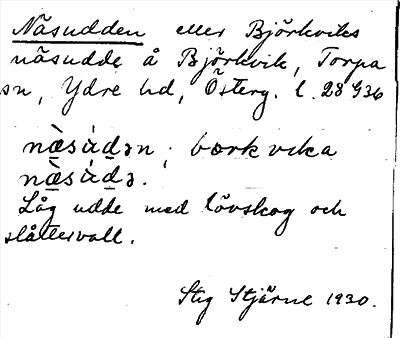 Näsudden eller Björkviks
näsudde å Björkvik, Torpa
sn, Ydre hd, Österg. l. 28 G36
næ̀sàdən; bœrkvika
næ̀sàdə.
Låg udde med lövskog och
slåttervall.
Stig Stjärne 1930.